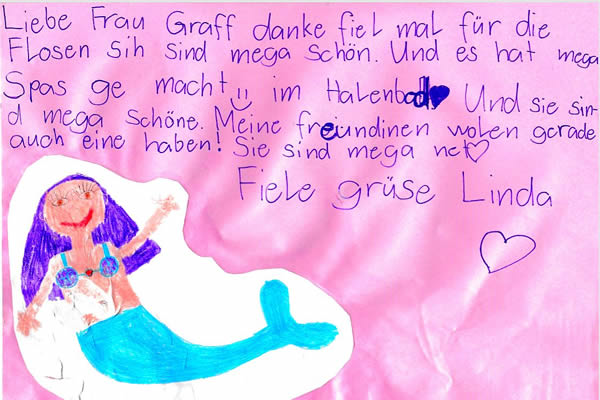 Liebe Frau Graff danke fiel mal für die
Flosen sih sind mega schön. Und es hat mega
Spas ge macht :) im Halenbad♥ Und sie sin-
d mega schöne. Meine freundinen wolen gerade
auch eine haben! Sie sind mega net♡
Fiele grüse Linda